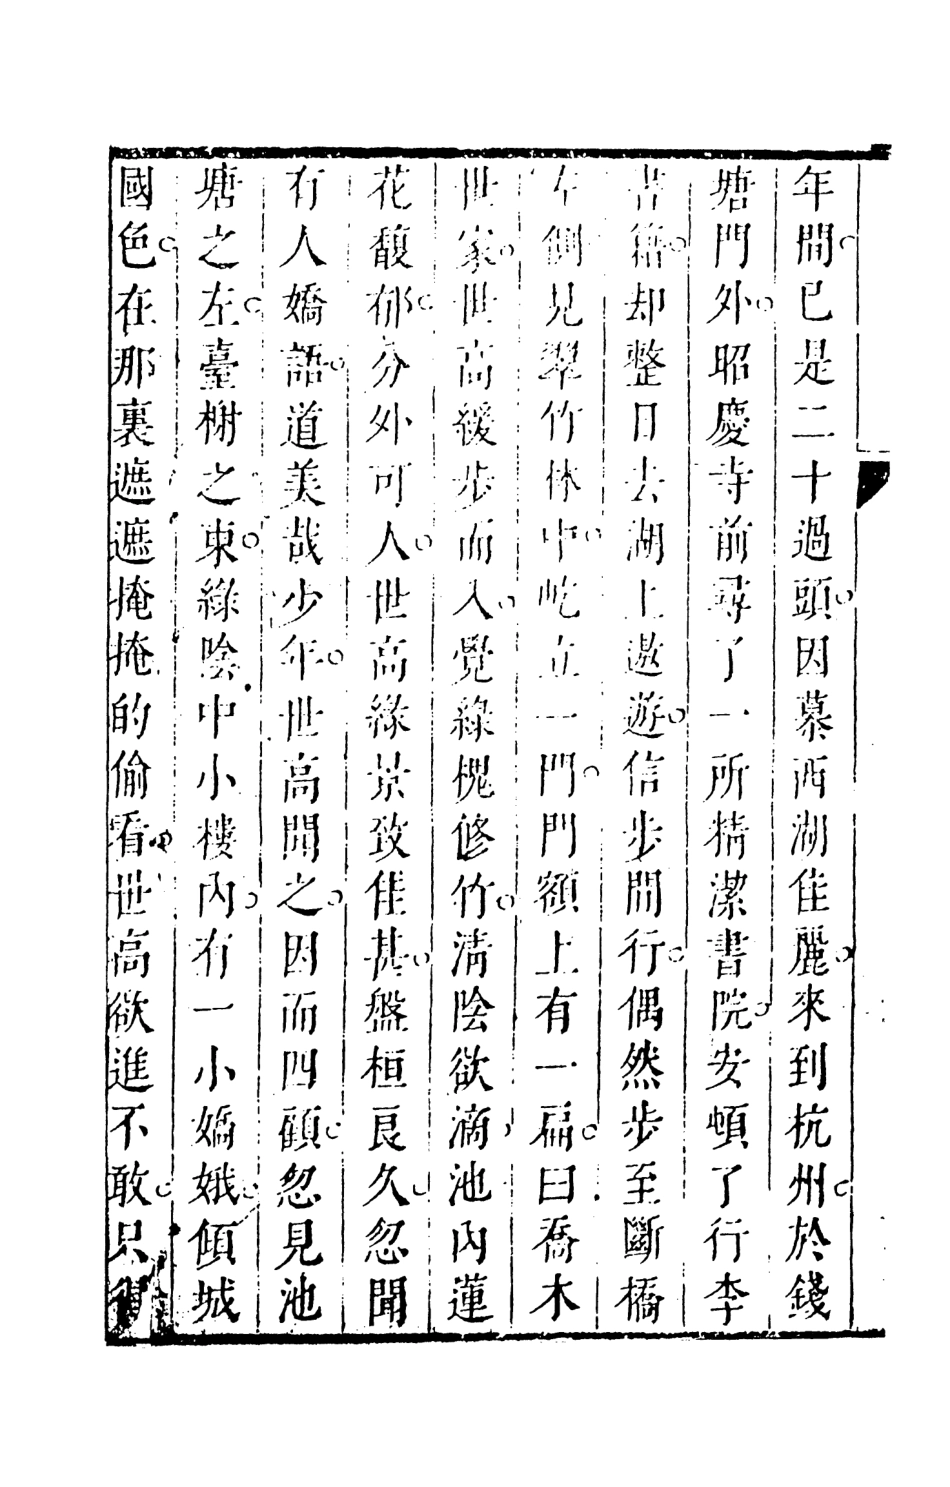 年間。已是二十過頭。因慕西湖佳麗。來到杭州。於錢
塘門外。昭慶寺前尋了一所精潔書院。安頓了行李
書籍。却整日去湖上遨遊。信步間行。偶然步至斷橋
左側見翠竹林中。屹立一門。門額上有一扁。曰喬木
世家。世高緩步而入。覺綠槐修竹。清陰欲滴。池內蓮
花馥郁。分外可人。世高緣景致佳甚。盤桓良久。忽聞
有人嬌語。道美哉少年。世高聞之。因而四顧。忽見池
塘之左。臺榭之東。綠陰中小樓內。有一小嬌娥。傾城
國色。在那裏遮遮掩掩的偷看。世高欲進不敢。只得